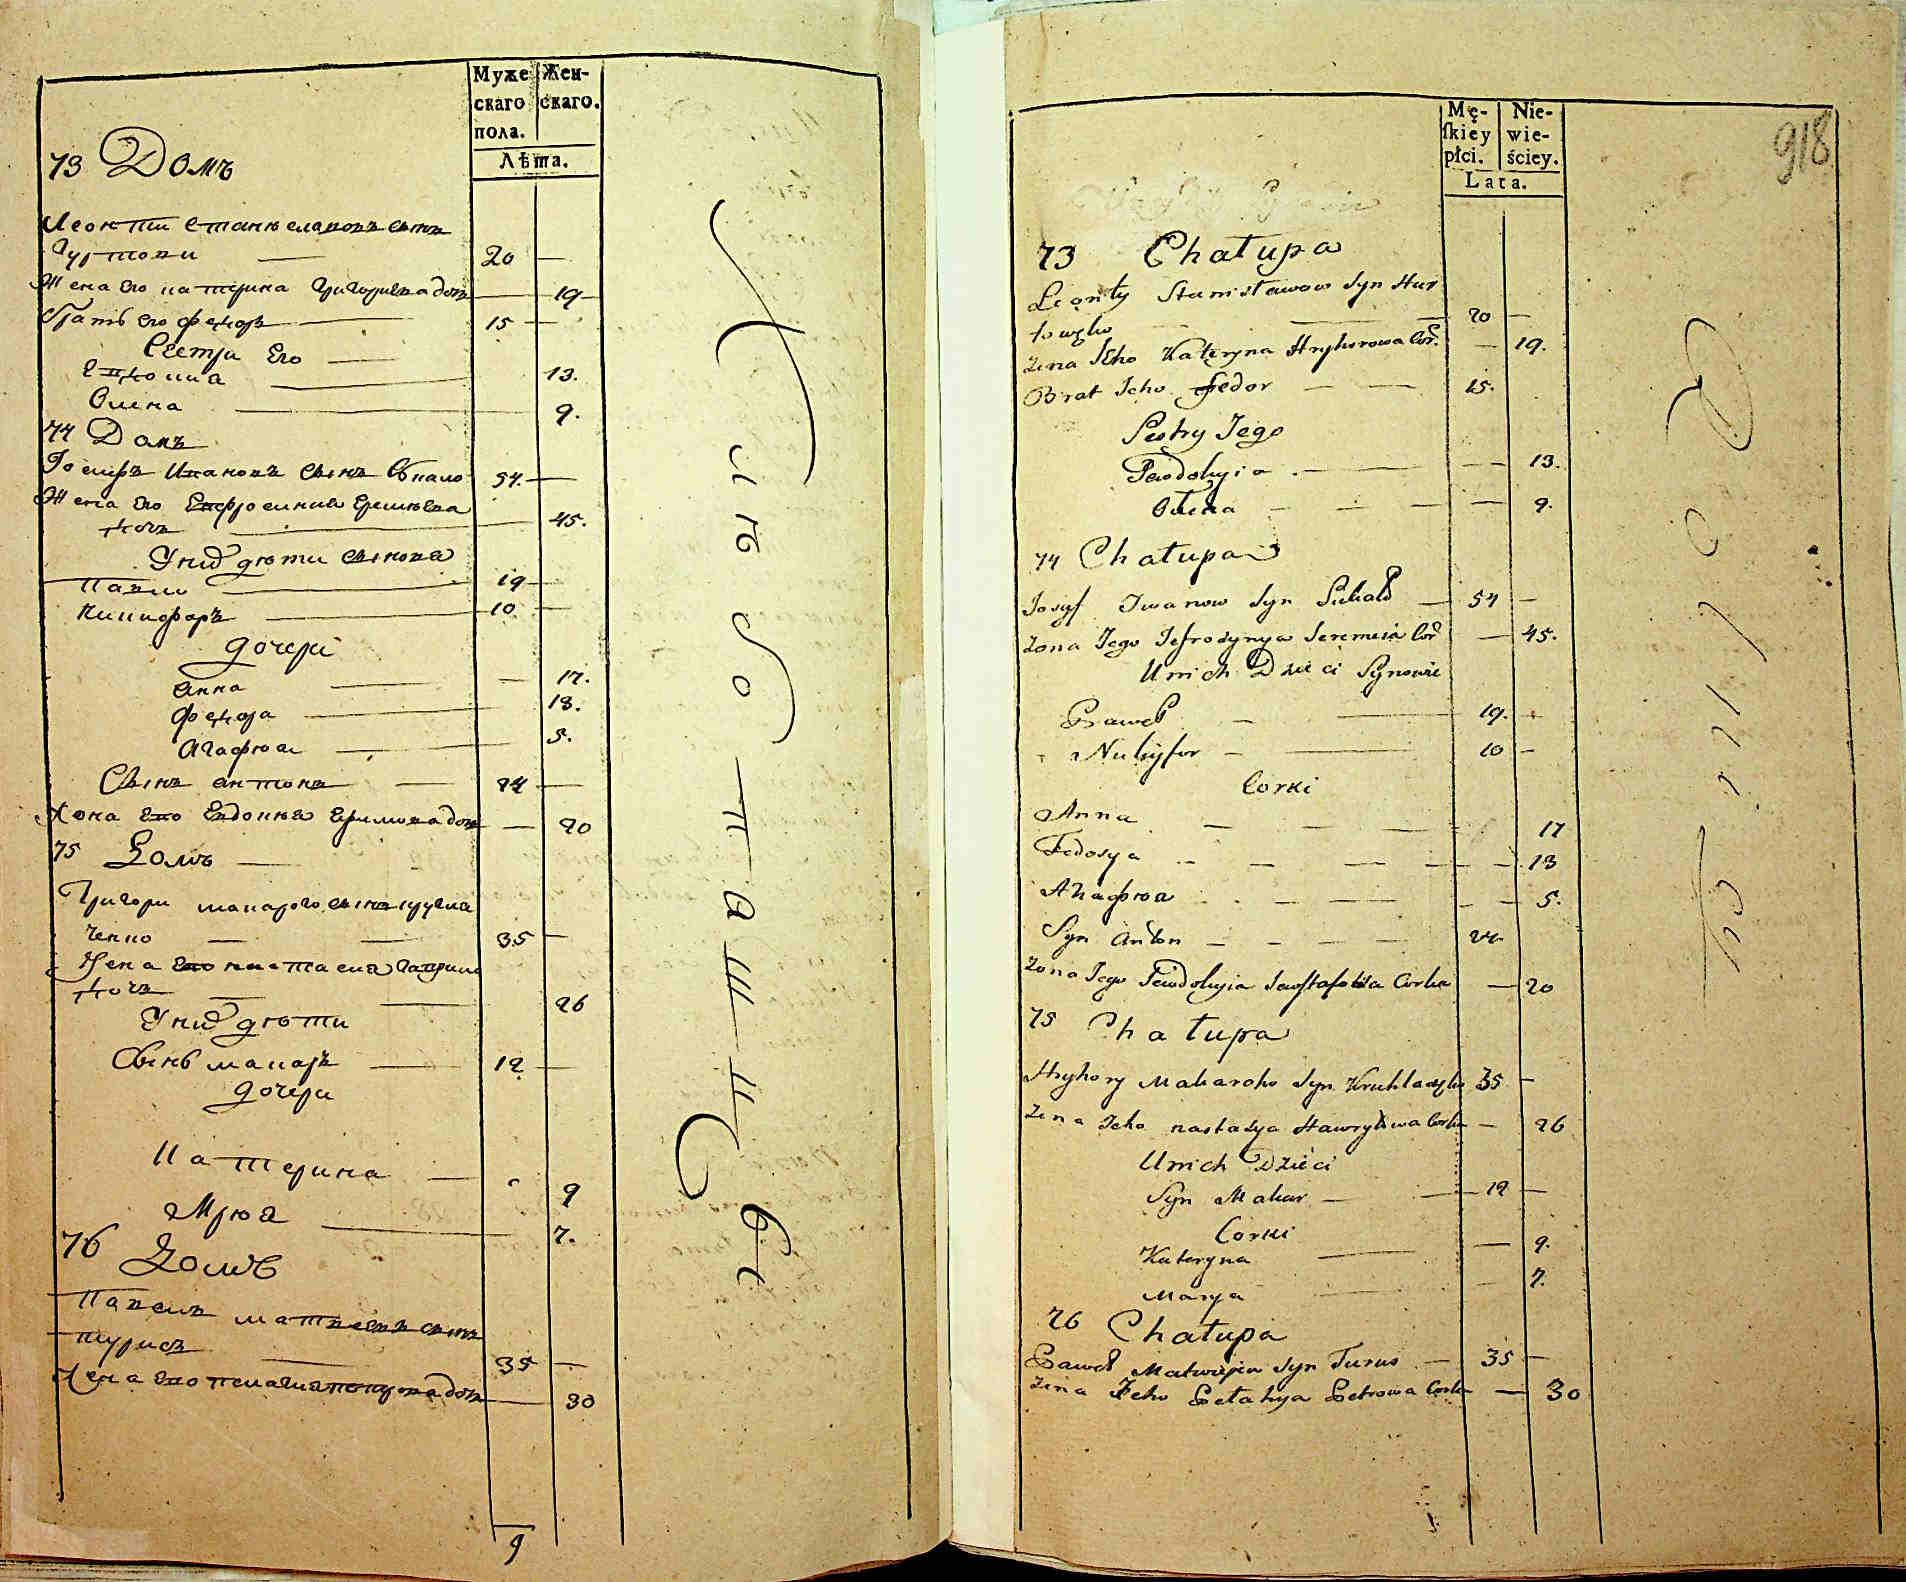 Муже
скаго
пола.
Жен-
скаго.
Лѣта.
73 Домъ
Леонти Станиславовъ сынъ
Гуртови 20
Жена Его Катерина Григориева доч 19
Братъ Его Федоръ 15
Сестри Его
Евдокиа 13.
Олена 9.
74 Домъ
Иосифъ Ивановъ Сынъ 54.
Жена Его Евфросиния 45.
дочъ
Унихъ дѣти Синове
Павло 19
Никифоръ 10
Дочери
Анна 17.
Федося 13.
Агафия 5.
Сынъ Антонъ 24
Жена Его Евдокия доч 20
75 Домъ
Григори Макарого Сынъ Кругля
ченко 35
Жена Его Настасия
дочъ 26
Унихъ дѣти
Сынъ Макаръ 12
Дочери
Катерина 9
Мрия 7.
76 Домъ
Павелъ Матвеевъ Сынъ
Турисъ 35
Жена Его Пелагия Петрова доч 30
9
Хлѣбопашцы
918
Mę-
skiey
płci.
Nie-
wie-
ściey.
Lata.
73 Chałupa
Leonty Stanisławow Syn Hur
towyko 20
Zena Jeho Kateryna Hryhorowa Cor. 19.
Brat Jeho Fedor 15.
Sestry Jego
Jewdokyia 13.
Ołena 9.
74 Chałupa
Josyf Iwanow Syn 54
Zona Jego Jefrosynya Jeremeia Cor 45.
Unich Dzieci Synowie
Paweł 19.
Nykyfor 10
Corki
Anna 17
Fedosya 13
Ahафия 5.
Syn Anton 24.
Zona Jego Jewdokyia Corka 20
75 Chałupa
Hryhory Makaroho Syn 35
Zena Jeho nastasya Hawryłowa Corka 26
Unich Dzieci
Syn Makar 12
Corki
Kateryna 9.
Marya 7.
76 Chałupa
Paweł Matwiejew Syn Turus 35
Zena Jeho Pełahya Petrowa Corka 30
Rolnicy